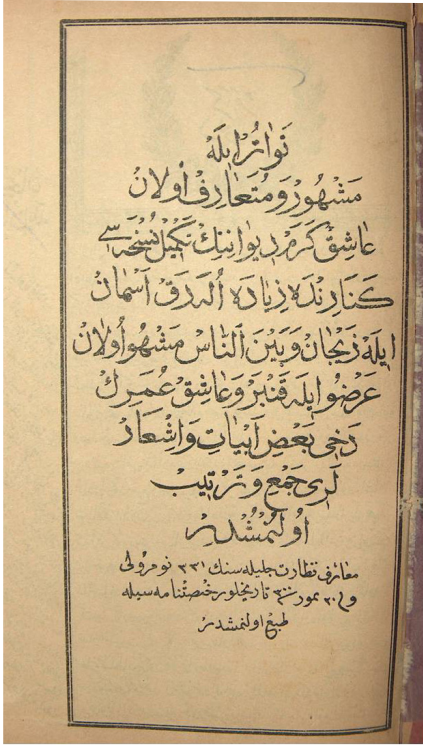 نَوَاتُرْ ايلَهْ
مَشْهُورْ وَمُتَعَارِفْ اُولَانْ
عَاشِقْ كَرَمْ دِيوَانِنِكْ تَكْمِيلْ نُسْخَهسِى
كَنَارِنْدَه زِيَادَه اُلَهرَقْ اَسْمَانْ
ايلَهْ زَيْجَانْ وَبَيْنَ النَّاسْ مَشْهُو اُولَانْ
عَرْضُو ايلَه قَنْبَرْ وَعَاشِقْ عُمَرِكْ
دَخِى بَعْضِ اَبْيَاتِ وَاِشْعَارْ
لَرِى جَمْعِ وَتَرْتِيبْ
اُولُنْمُشْدِرْ
معارف نظارت جليله سنك ٣٣١ نومرولى
تاريخلو رخصتنامه سيله
طبع اولنمشدر